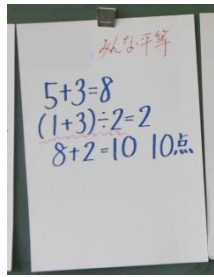 みんな平等
5+3=8
(1+3)÷2=2
8+2=10 10点